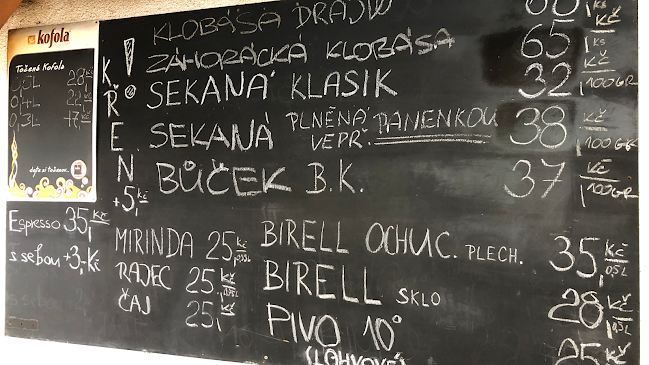 kofola
Točená Kofola
0,5L 28 Kč
0,4L 22 Kč
0,3L 17 Kč
Espresso 35,- Kč
s sebou +3,- Kč
! KŘEN
+5,- Kč
KLOBÁSA DRAJV Kč 1ks
ZÁHORÁCKÁ KLOBÁSA 65 Kč 1ks
SEKANÁ KLASIK 32 Kč 100GR
SEKANÁ PLNĚNÁ VEPŘ. PANENKOU 38 Kč 100GR
BŮČEK B.K. 37 Kč 100GR
MIRINDA 25 Kč
RAJEC 25 Kč
ČAJ 25,- Kč
BIRELL OCHUC. PLECH. 35,- Kč 0,5L
BIRELL SKLO 28 Kč 0,5L
PIVO 10° 25 Kč
(LAHVOVÉ)